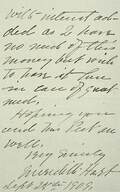 with interest ad-
ded as I have
no need of this
money but wish
to have it
in case of great
need.
Hoping you
and are
well.
Very truly
Meredith
Sept 24th 1909.